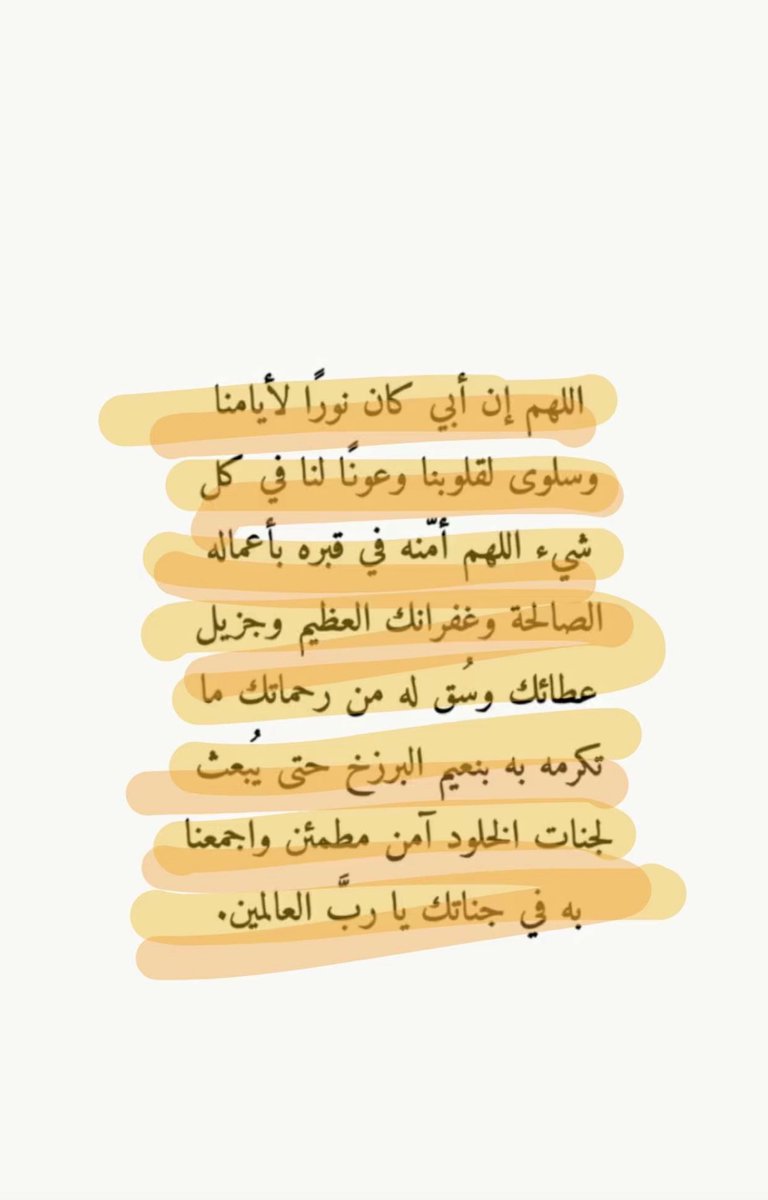 اللهم إن أبي كان نورًا لأيامنا
وسلوى لقلوبنا وعونًا لنا في كل
شيء اللهم أمّنه في قبره بأعماله
الصالحة وغفرانك العظيم وجزيل
عطائك وسُق له من رحماتك ما
تكرمه به بنعيم البرزخ حتى يُبعث
لجنات الخلود آمن مطمئن واجمعنا
به في جناتك يا ربَّ العالمين.